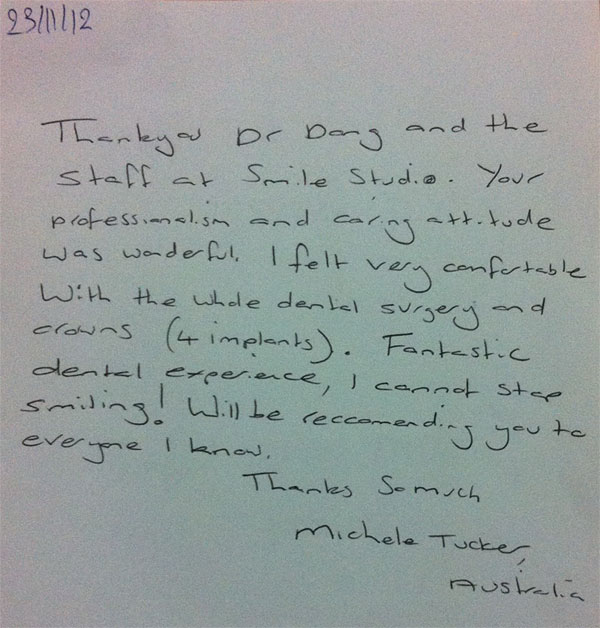 23/11/12
Thankyou Dr Dang and the
staff at Smile Studio. Your
professionalism and caring attitude
was wonderful. I felt very comfortable
With the whole dental surgery and
crowns (4 implants). Fantastic
dental experience, I cannot stop
smiling! Will be reccomending you to
everyone I know.
Thanks So much
Michele Tucker,
Australia